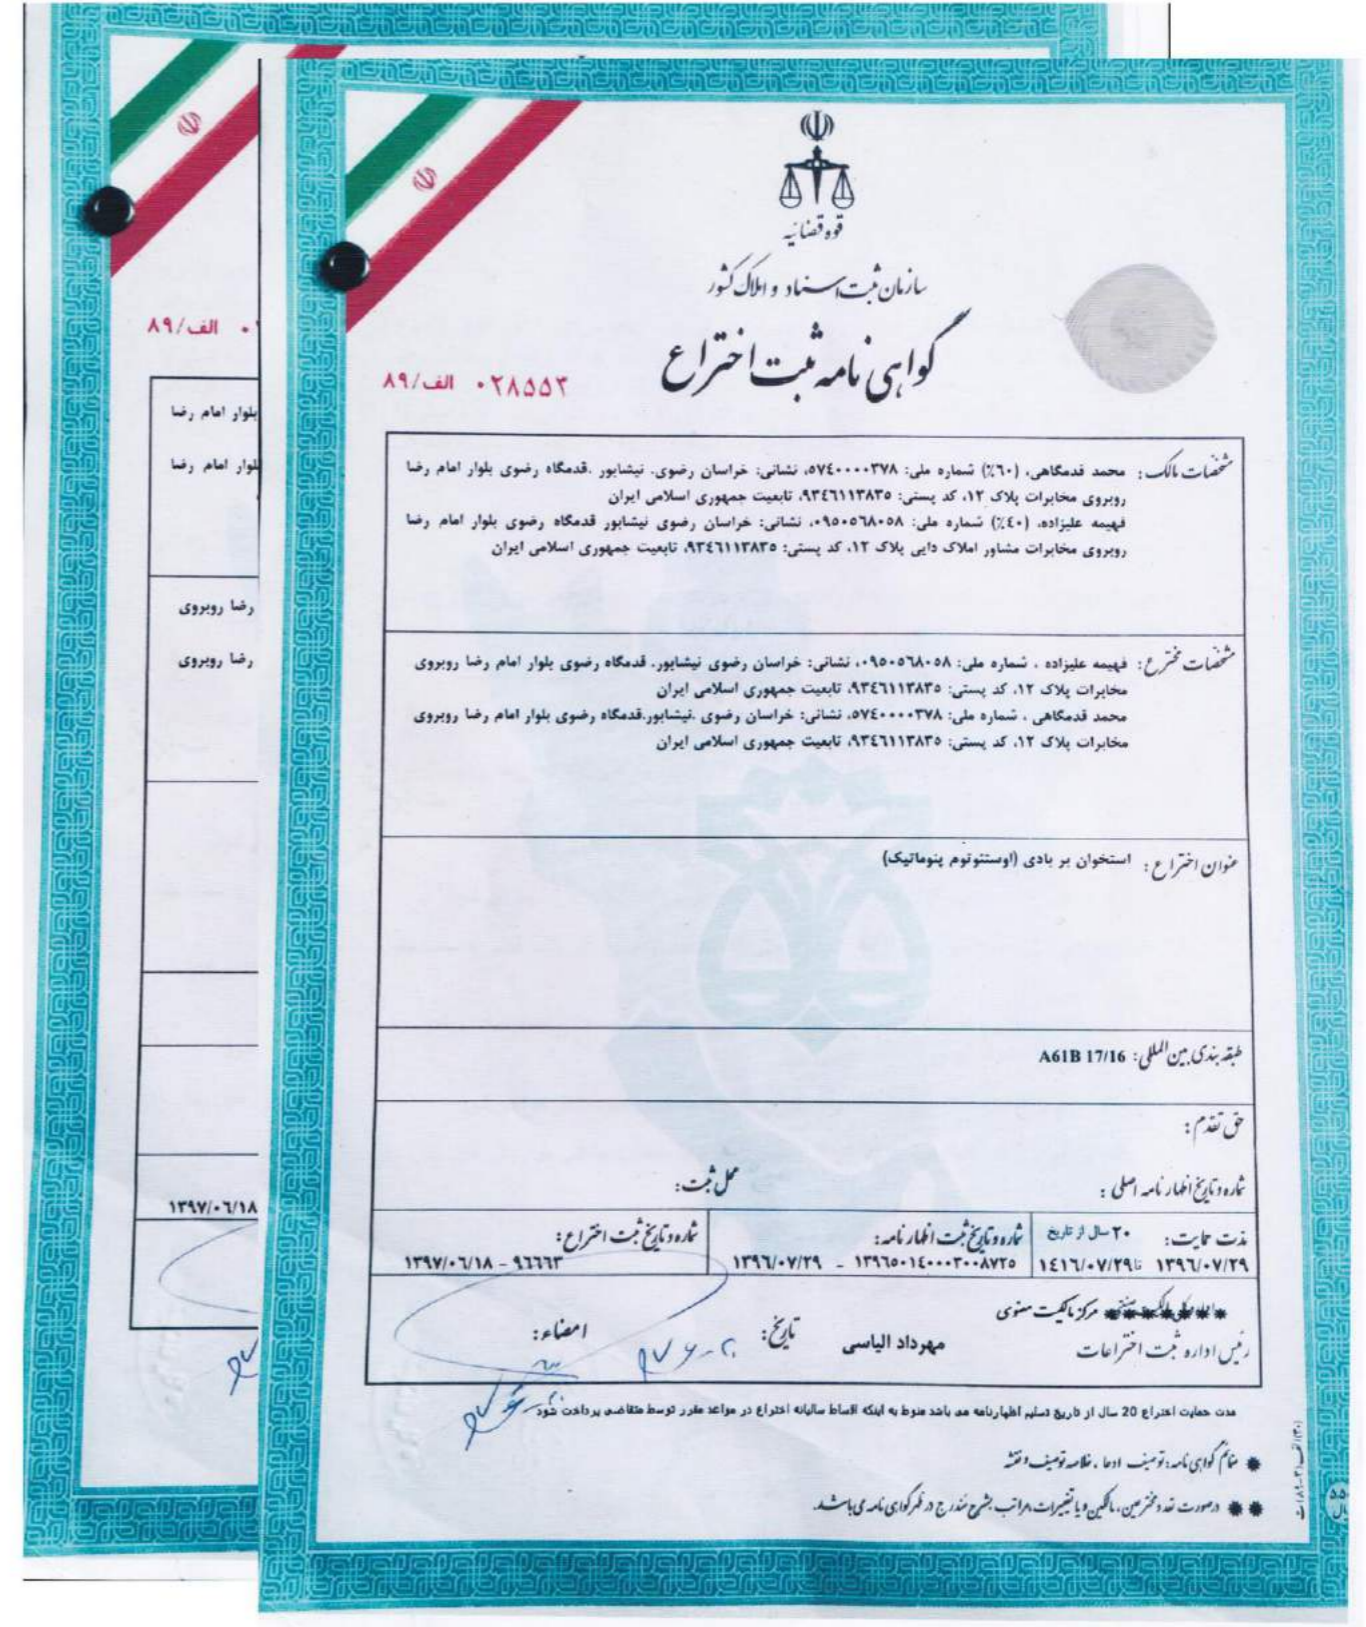 قوه قضائیه
سازمان ثبت اسناد و املاک کشور
گواهی نامه ثبت اختراع
۰۲۸۵۵۳ الف/۸۹
مشخصات مالک: محمد قدمگاهی، (۶۰٪) شماره ملی: ۵۷۴۰۰۰۰۳۷۸، نشانی: خراسان رضوی. نیشابور .قدمگاه رضوی بلوار امام رضا
روبروی مخابرات پلاک ۱۲، کد پستی: ۹۳۴۶۱۱۳۸۳۵، تابعیت جمهوری اسلامی ایران
فهیمه علیزاده، (۴۰٪) شماره ملی: ۰۹۵۰۵۶۸۰۵۸، نشانی: خراسان رضوی نیشابور قدمگاه رضوی بلوار امام رضا
روبروی مخابرات مشاور املاک دایی پلاک ۱۲، کد پستی: ۹۳۴۶۱۱۳۸۳۵، تابعیت جمهوری اسلامی ایران
مشخصات مخترع: فهیمه علیزاده ، شماره ملی: ۰۹۵۰۵۶۸۰۵۸، نشانی: خراسان رضوی نیشابور. قدمگاه رضوی بلوار امام رضا روبروی
مخابرات پلاک ۱۲، کد پستی: ۹۳۴۶۱۱۳۸۳۵، تابعیت جمهوری اسلامی ایران
محمد قدمگاهی ، شماره ملی: ۵۷۴۰۰۰۰۳۷۸، نشانی: خراسان رضوی .نیشابور.قدمگاه رضوی بلوار امام رضا روبروی
مخابرات پلاک ۱۲، کد پستی: ۹۳۴۶۱۱۳۸۳۵، تابعیت جمهوری اسلامی ایران
عنوان اختراع: استخوان بر بادی (اوستئوتوم پنوماتیک)
طبقه بندی بین المللی: A61B 17/16
حق تقدم:
شماره و تاریخ اظهارنامه اصلی: محل ثبت:
مدت حمایت: ۲۰ سال از تاریخ شماره و تاریخ ثبت اظهارنامه: شماره و تاریخ ثبت اختراع:
۱۳۹۶/۰۷/۲۹ تا ۱۴۱۶/۰۷/۲۹ ۱۳۹۶۵۰۱۴۰۰۰۳۰۰۸۷۲۵ - ۱۳۹۶/۰۷/۲۹ ۹۶۶۶۳ - ۱۳۹۷/۰۶/۱۸
مرکز مالکیت معنوی
رئیس اداره ثبت اختراعات مهرداد الیاسی تاریخ: امضاء:
مدت حمایت اختراع 20 سال از تاریخ تسلیم اظهارنامه می باشد منوط به اینکه اقساط سالیانه اختراع در مواعد مقرر توسط متقاضی پرداخت شود
✱ ضمائم گواهی نامه: توصیف، ادعا، خلاصه توصیف و نقشه
✱✱ درصورت تعدد مخترعین، مالکین و یا تغییرات، مراتب بشرح مندرج در ظهر گواهی نامه می باشد.
الف/۸۹
بلوار امام رضا
بلوار امام رضا
رضا روبروی
رضا روبروی
۱۳۹۷/۰۶/۱۸